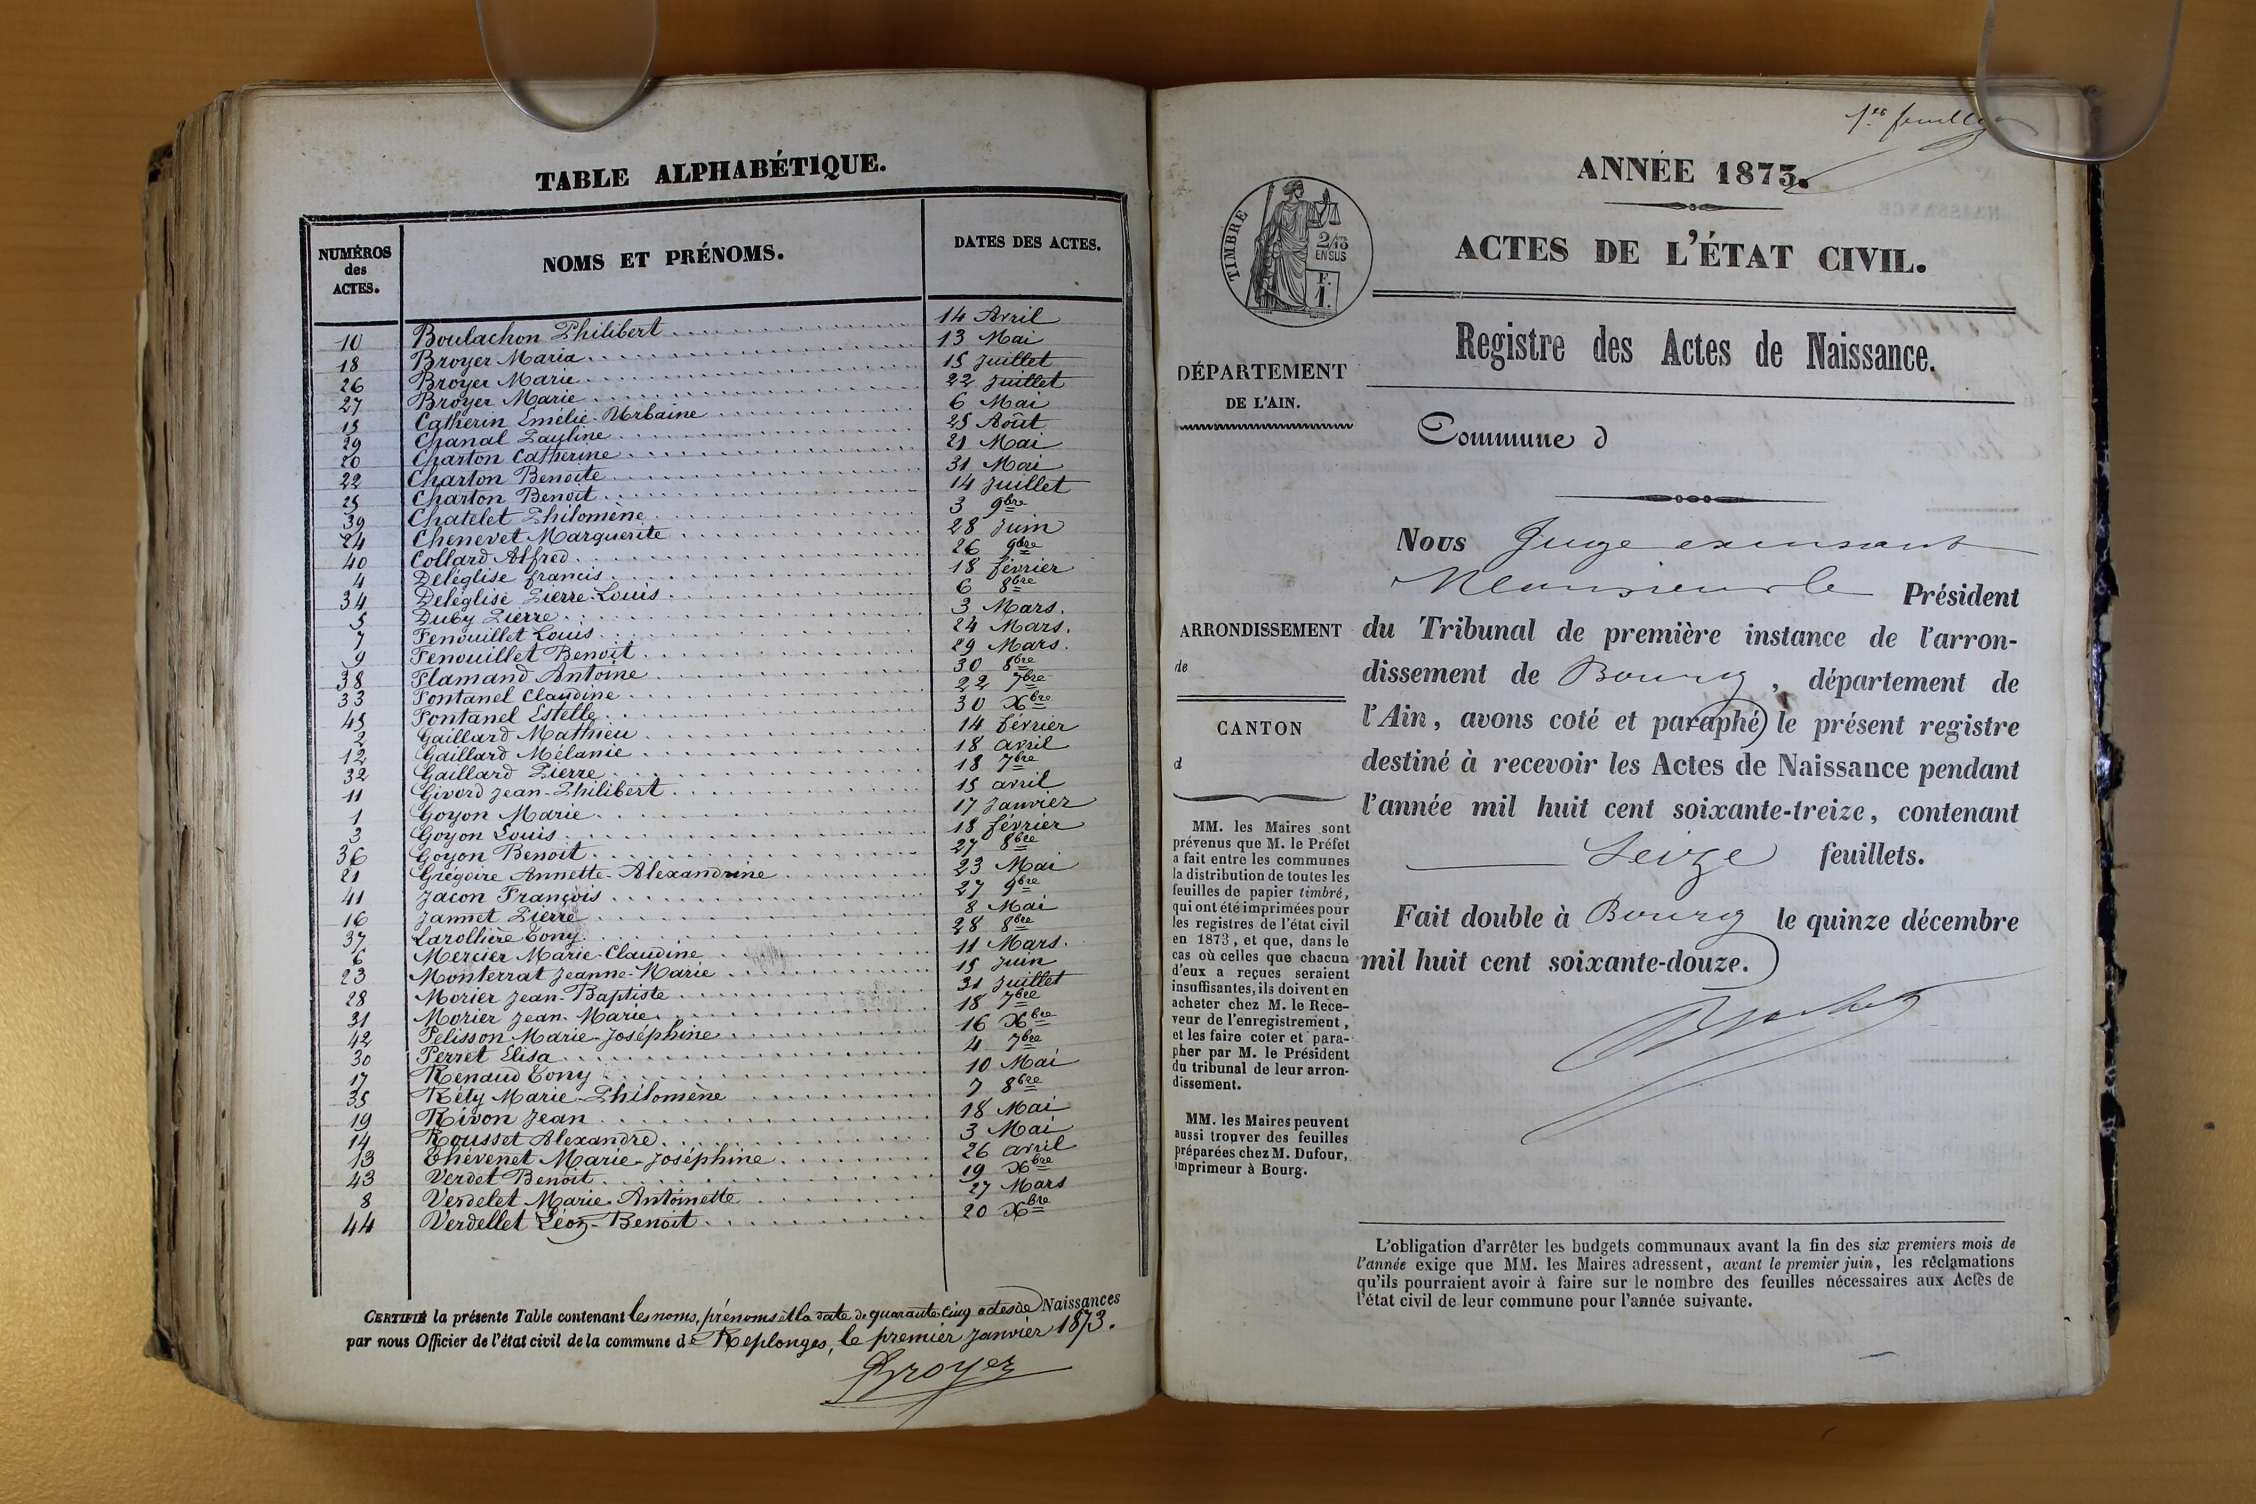 TABLE ALPHABÉTIQUE.
NUMÉROS des ACTES. NOMS ET PRÉNOMS. DATES DES ACTES.
10 Boulachon Philibert 14 Avril
18 Broyer Maria 13 Mai
26 Broyer Marie 15 Juillet
27 Broyer Marie 22 Juillet
15 Catherin Emélie-Urbaine 6 Mai
29 Chanal Pauline 25 Août
20 Charton Catherine 21 Mai
22 Charton Benoite 31 Mai
25 Charton Benoit 14 Juillet
39 Chatelet Philomène 3 9bre
24 Chenevet Marguerite 28 Juin
40 Collard Alfred 26 9bre
4 Deléglise francis 18 février
34 Deléglise Pierre-Louis 6 8bre
5 Duby Pierre 3 Mars.
7 Fenouillet Louis 24 Mars.
9 Fenouillet Benoit 29 Mars.
38 Flamand Antoine 30 8bre
33 Fontanel Claudine 22 7bre
45 Fontanel Estelle 30 Xbre
2 Gaillard Mathieu 14 février
12 Gaillard Mélanie 18 avril
32 Gaillard Pierre 18 7bre
11 Givord Jean-Philibert 15 avril
1 Goyon Marie 17 Janvier
3 Goyon Louis 18 février
36 Goyon Benoit 27 8bre
21 Grégoire Annette-Alexandrine 23 Mai
41 Jacon François 27 9bre
16 Jannet Pierre 8 Mai
37 Larollière Tony 28 8bre
6 Mercier Marie-Claudine 11 Mars.
23 Monterrat Jeanne-Marie 15 Juin
28 Morier Jean-Baptiste 31 Juillet
31 Morier Jean-Marie 18 7bre
42 Pelisson Marie-Joséphine 16 Xbre
30 Perret Elisa 4 7bre
17 Renaud Tony 10 Mai
35 Réty Marie-Philomène 7 8bre
19 Rivon Jean 18 Mai
14 Rousset Alexandre 3 Mai
13 Thévenet Marie-Joséphine 26 avril
43 Verdet Benoit 19 Xbre
8 Verdelet Marie-Antoinette 27 Mars
44 Verdellet Léon-Benoit 20 Xbre
CERTIFIÉ la présente Table contenant les noms, prénoms et la date de quarante cinq actes de Naissances
par nous Officier de l'état civil de la commune de Replonges, le premier Janvier 1873.
Broyer
1er feuillet
ANNÉE 1873.
ACTES DE L'ÉTAT CIVIL.
TIMBRE
2/10 EN SUS
F. 1.
Registre des Actes de Naissance.
DÉPARTEMENT
DE L'AIN.
Commune d
Nous Juge exerçant
Monsieur le Président
ARRONDISSEMENT
de
CANTON
d
du Tribunal de première instance de l'arron-
dissement de Bourg, département de
l'Ain, avons coté et paraphé le présent registre
destiné à recevoir les Actes de Naissance pendant
l'année mil huit cent soixante-treize, contenant
Seize feuillets.
Fait double à Bourg le quinze décembre
mil huit cent soixante-douze.
MM. les Maires sont
prévenus que M. le Préfet
a fait entre les communes
la distribution de toutes les
feuilles de papier timbré,
qui ont été imprimées pour
les registres de l'état civil
en 1873, et que, dans le
cas où celles que chacun
d'eux a reçues seraient
insuffisantes, ils doivent en
acheter chez M. le Rece-
veur de l'enregistrement,
et les faire coter et para-
pher par M. le Président
du tribunal de leur arron-
dissement.
MM. les Maires peuvent
aussi trouver des feuilles
préparées chez M. Dufour,
imprimeur à Bourg.
L'obligation d'arrêter les budgets communaux avant la fin des six premiers mois de
l'année exige que MM. les Maires adressent, avant le premier juin, les réclamations
qu'ils pourraient avoir à faire sur le nombre des feuilles nécessaires aux Actes de
l'état civil de leur commune pour l'année suivante.